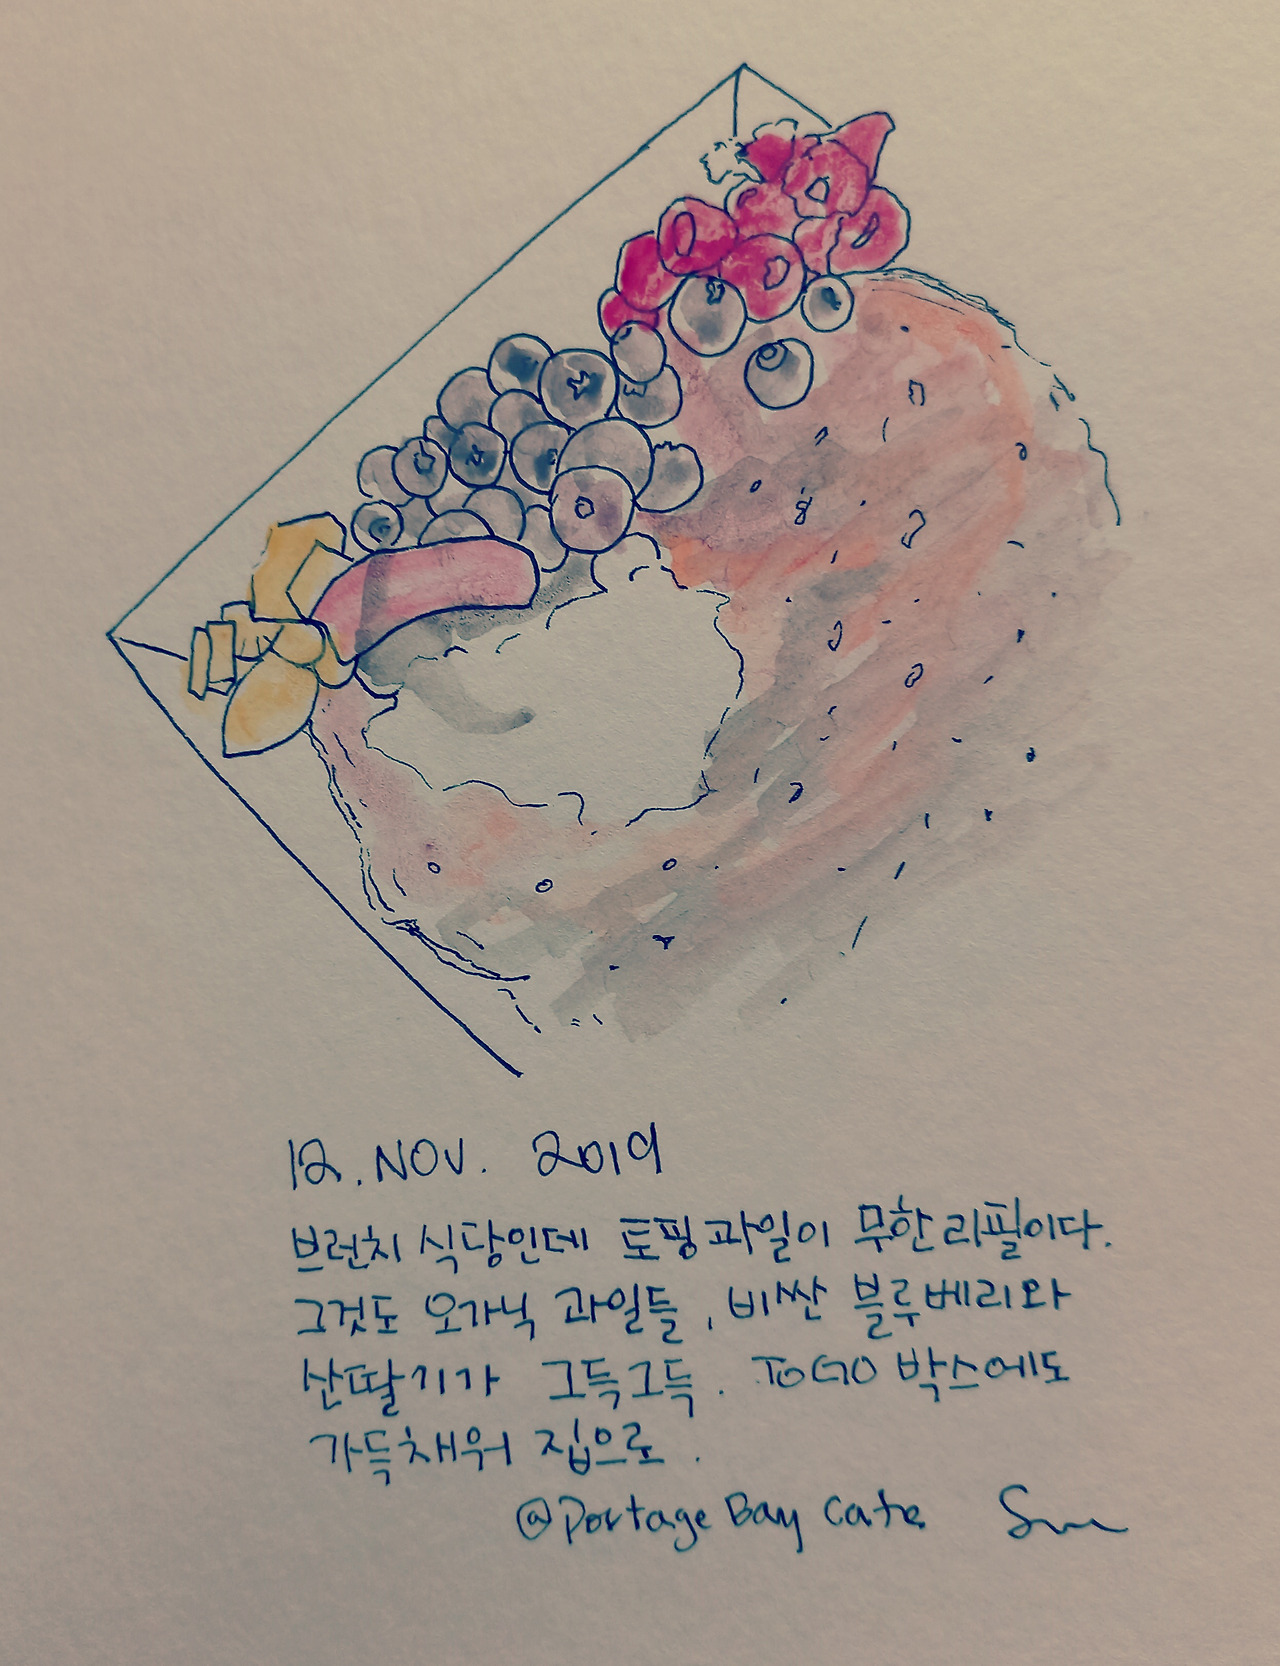 12. NOV. 2019
브런치 식당인데 토핑 과일이 무한리필이다.
그것도 오가닉 과일들, 비싼 블루베리와
산딸기가 그득그득. TOGO 박스에도
가득채워 집으로.
@Portage Bay Cafe